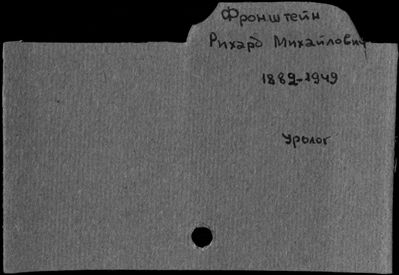 Фронштейн
Рихард Михайлович
1882-1949
Уролог